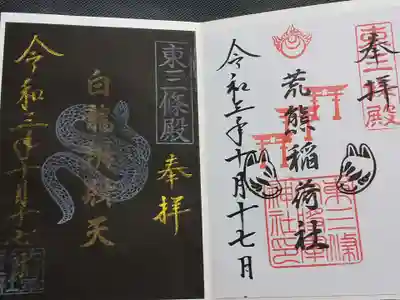 奉拝
東三條殿
荒熊稲荷社
東三條
神社印
令和三年十月十七日
東三條殿
奉拝
白龍
天
令和三年十月十七日